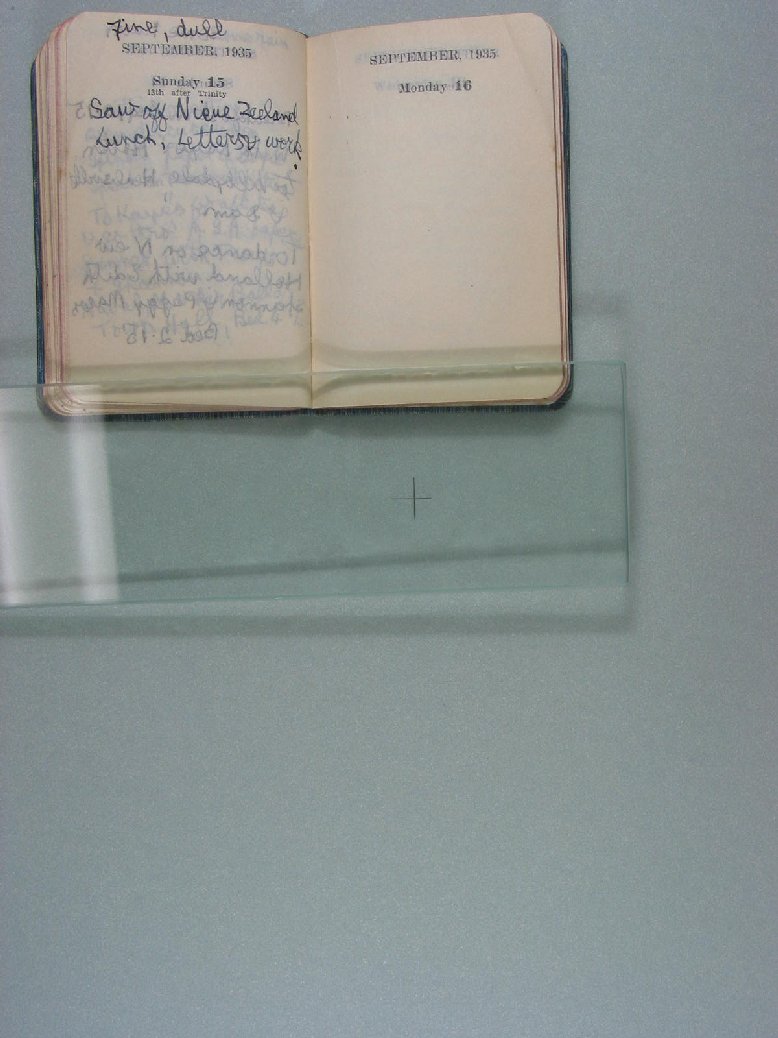 Fine, dull
SEPTEMBER, 1935
Sunday 15
13th after Trinity
Saw off Nieue Zeeland
Lunch, Letters & work.
SEPTEMBER, 1935
Monday 16